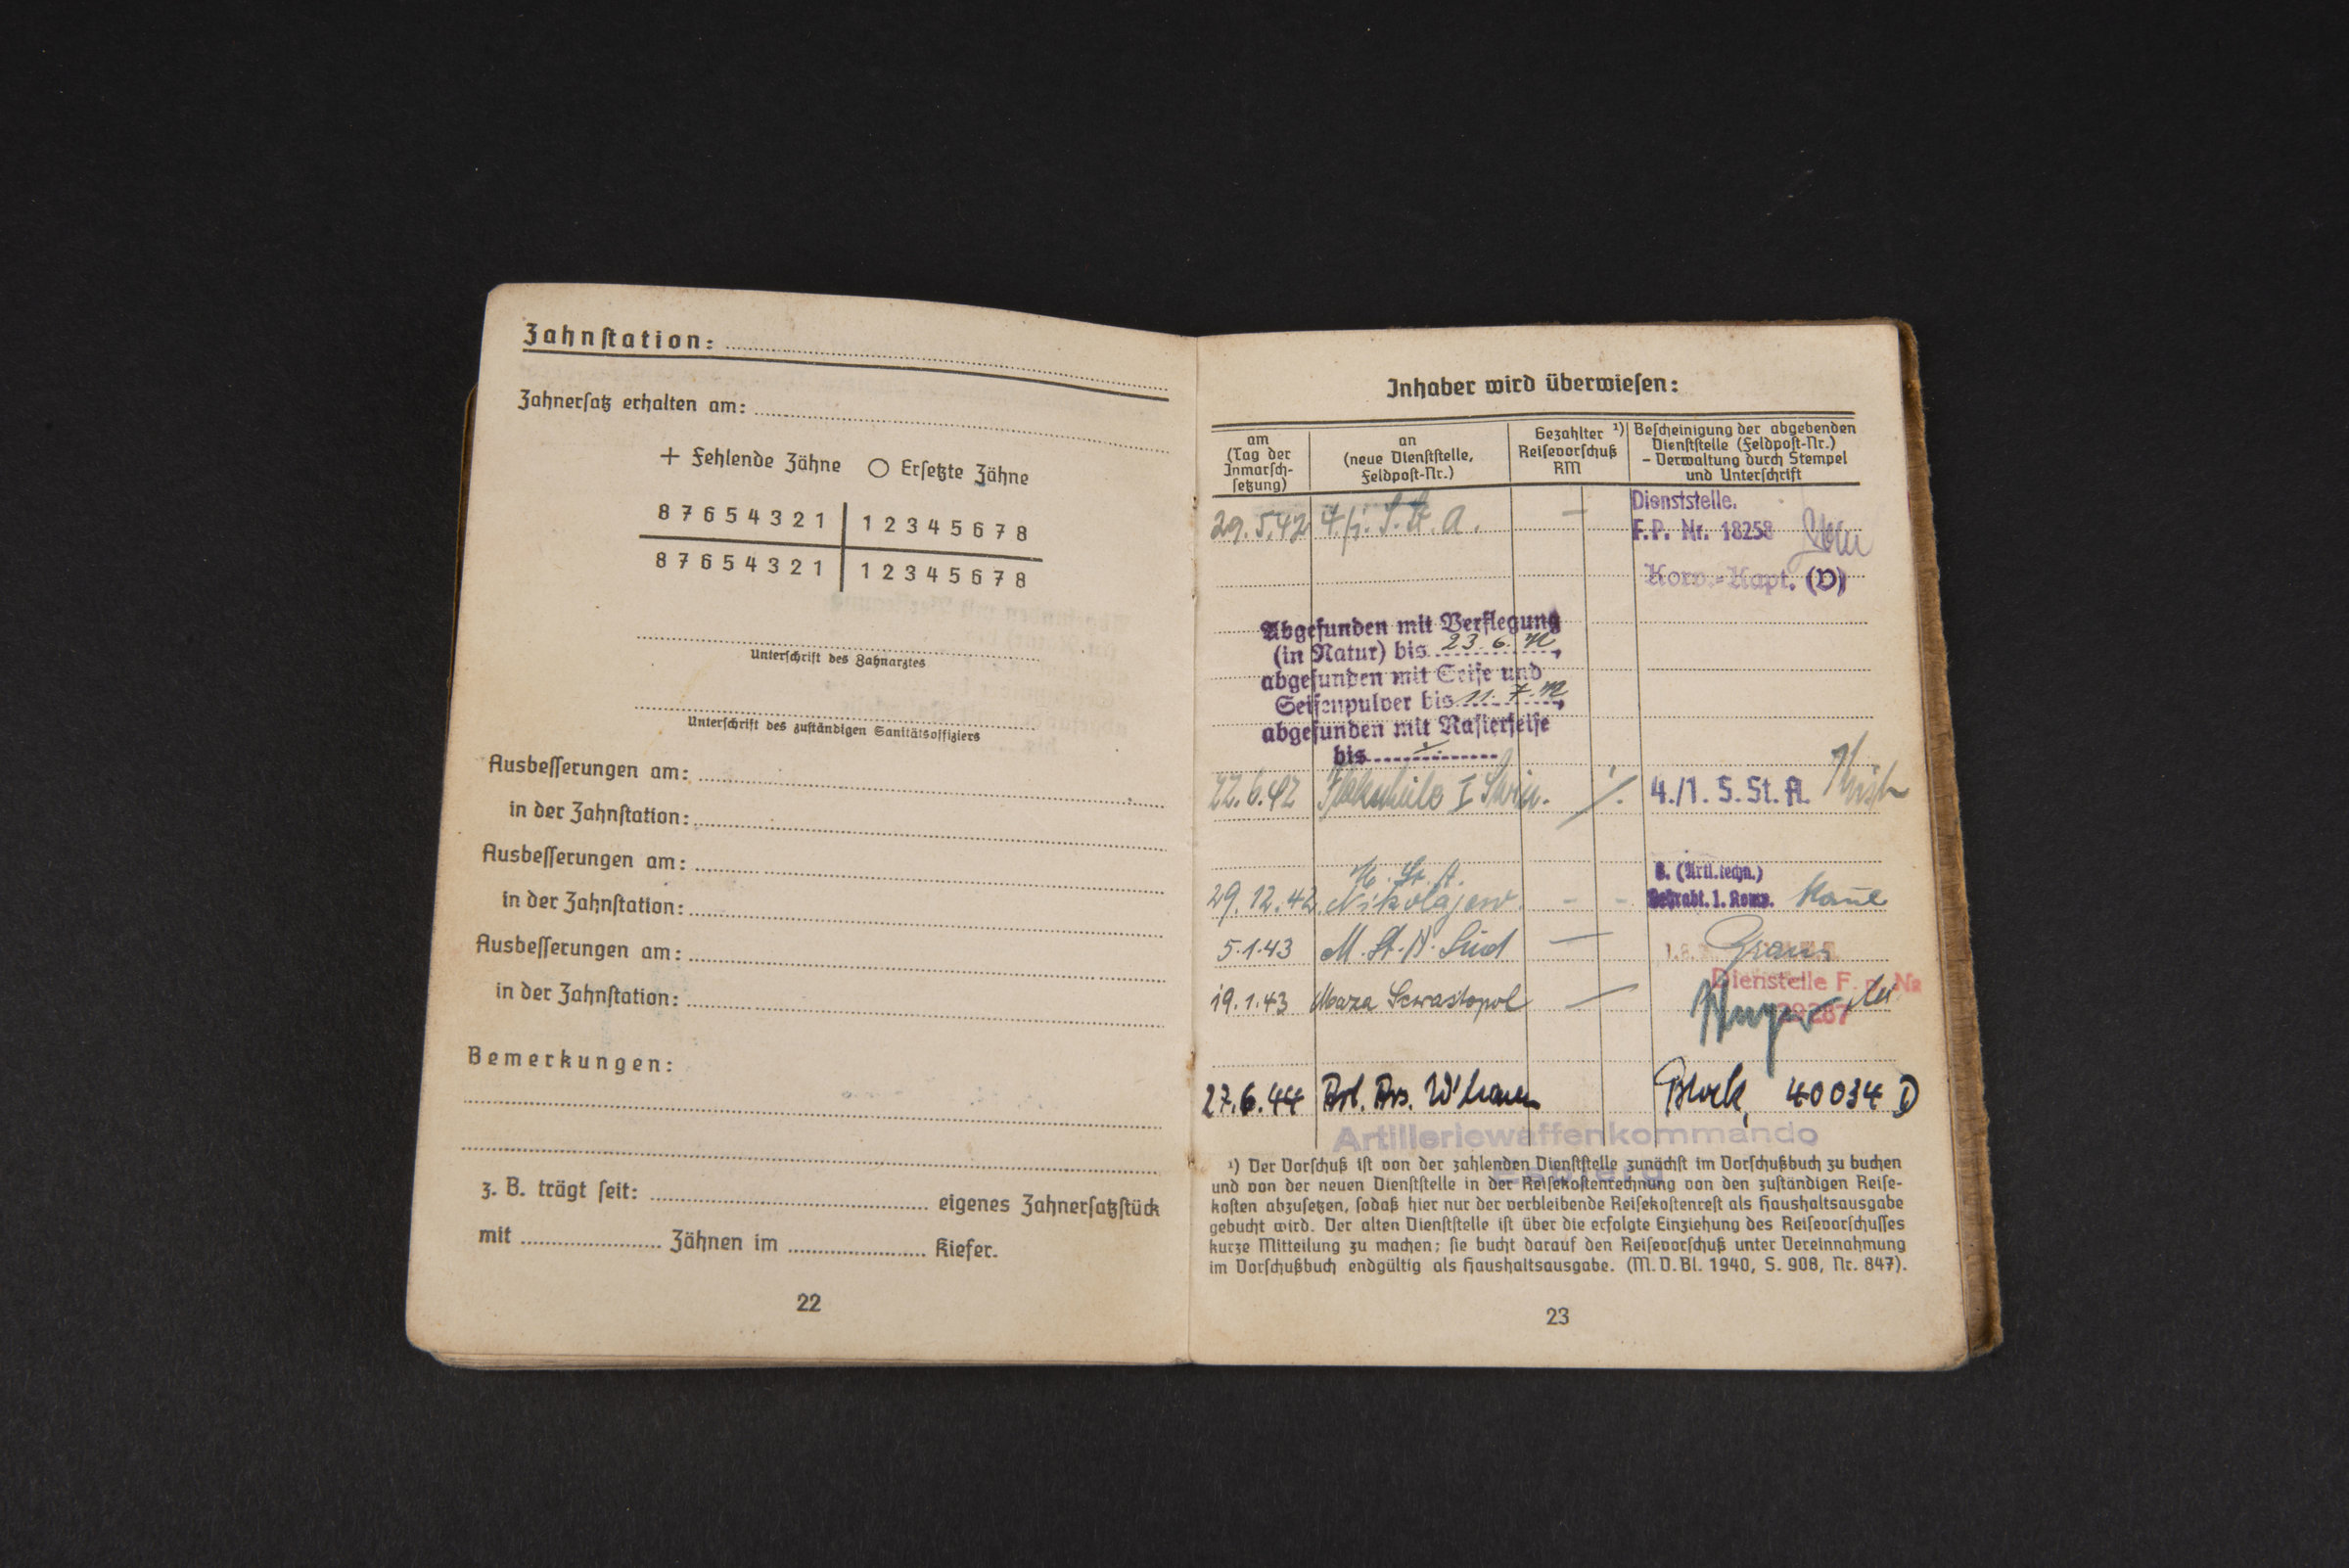 Zahnſtation:
Zahnerſatz erhalten am:
+ Fehlende Zähne ○ Erſetzte Zähne
8 7 6 5 4 3 2 1 1 2 3 4 5 6 7 8
8 7 6 5 4 3 2 1 1 2 3 4 5 6 7 8
Unterſchrift des Zahnarztes
Unterſchrift des zuſtändigen Sanitätsoffiziers
Ausbeſſerungen am:
in der Zahnſtation:
Ausbeſſerungen am:
in der Zahnſtation:
Ausbeſſerungen am:
in der Zahnſtation:
Bemerkungen:
z. B. trägt ſeit: eigenes Zahnerſatzſtück
mit Zähnen im Kiefer.
22
Inhaber wird überwieſen:
am
(Tag der
Inmarſch-
ſetzung)
an
(neue Dienſtſtelle,
Feldpoſt-Nr.)
Gezahlter ¹)
Reiſevorſchuß
RM
Beſcheinigung der abgebenden
Dienſtſtelle (Feldpoſt-Nr.)
– Verwaltung durch Stempel
und Unterſchrift
29.5.42 4./1. S. St. A. –
Dienststelle.
F.P. Nr. 18258
Korv.-Kapt. (V)
Abgefunden mit Verflegung
(in Natur) bis 23. 6.
abgefunden mit Seife und
Seifenpulver bis 11. 7.
abgefunden mit Raſierſeife
bis
22.6.42 I 4./1. S. St. A.
29.12.42 Nikolajew. - - (Artl.techn.)
1. Komp.
5.1.43 M. St. A. Süd –
19.1.43 Maza Sewastopol –
Dienstelle F. p. №
27.6.44 Block, 40034 D
Artilleriewaffenkommando
¹) Der Vorſchuß iſt von der zahlenden Dienſtſtelle zunächſt im Vorſchußbuch zu buchen
und von der neuen Dienſtſtelle in der Reiſekoſtenrechnung von den zuſtändigen Reiſe-
koſten abzuſetzen, ſodaß hier nur der verbleibende Reiſekoſtenreſt als Haushaltsausgabe
gebucht wird. Der alten Dienſtſtelle iſt über die erfolgte Einziehung des Reiſevorſchuſſes
kurze Mitteilung zu machen; ſie bucht darauf den Reiſevorſchuß unter Vereinnahmung
im Vorſchußbuch endgültig als Haushaltsausgabe. (M. V. Bl. 1940, S. 908, Nr. 847).
23